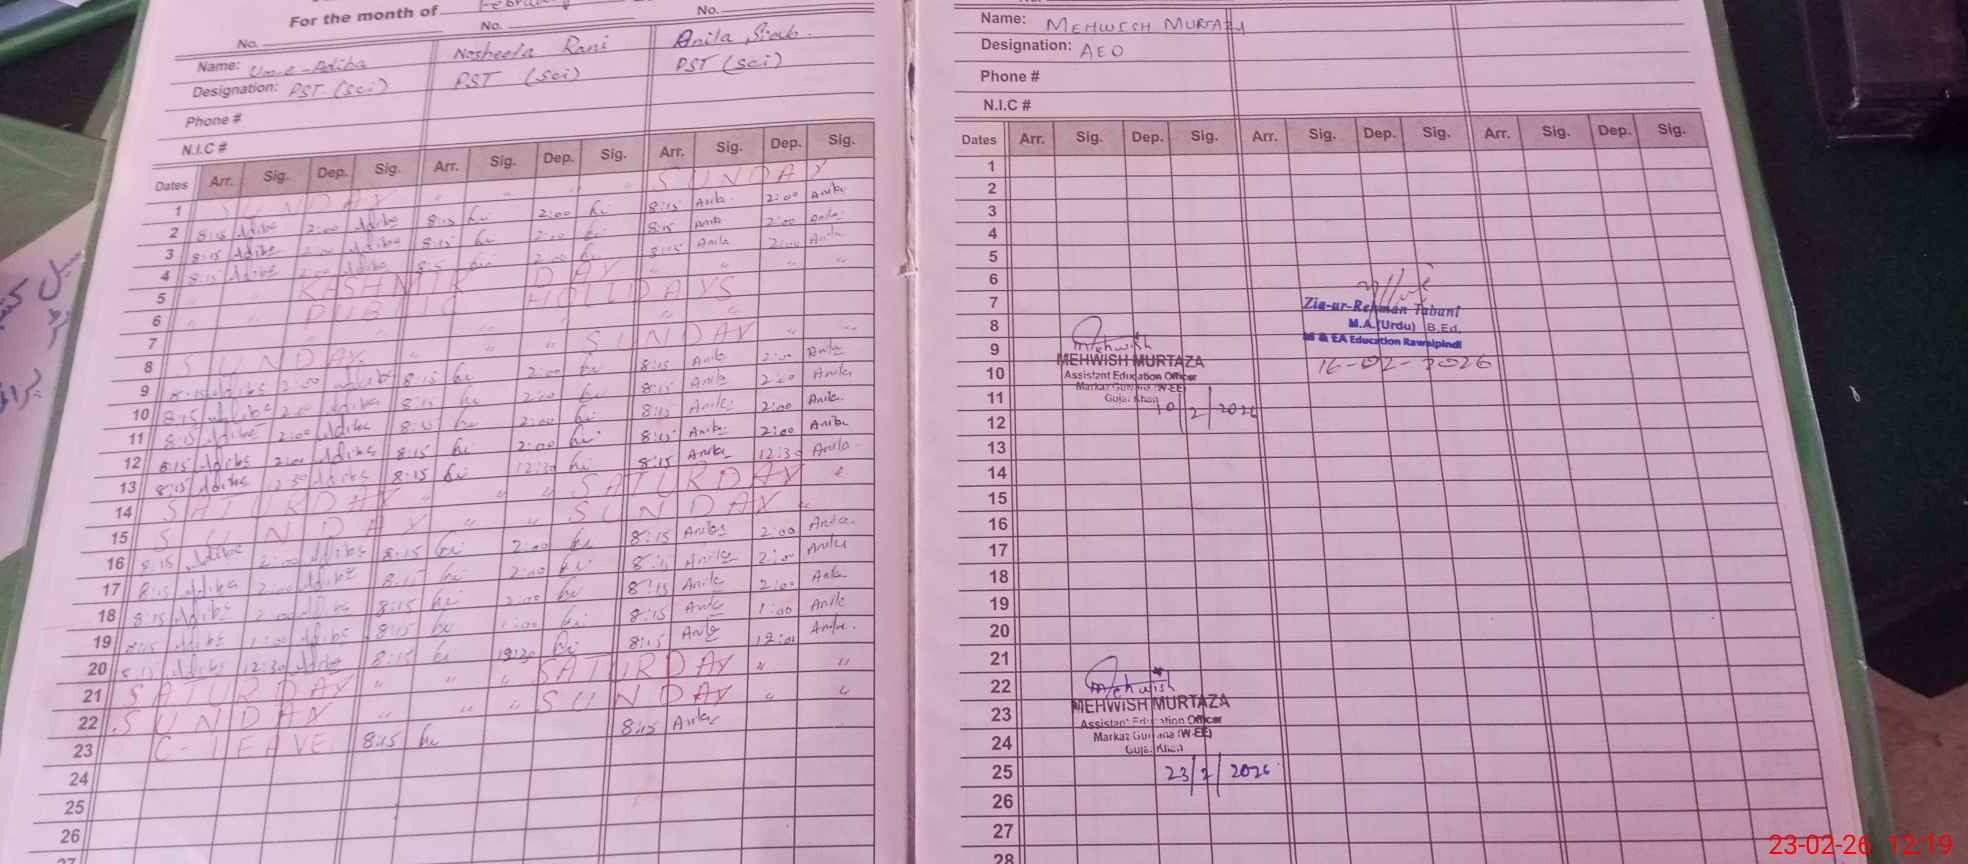 For the month of February
No. No. No.
Name: Um-e-Adiba Nosheela Rani Anila
Designation: PST (sci) PST (sci) PST (sci)
Phone #
N.I.C #
Dates Arr. Sig. Dep. Sig. Arr. Sig. Dep. Sig. Arr. Sig. Dep. Sig.
1 SUNDAY " " " " SUNDAY
2 8:15 Adiba 2:00 Adiba 8:15 2:00 8:15 Anila 2:00 Anila
3 8:15 Adiba 2:00 Adiba 8:15 2:00 8:15 Anila 2:00 Anila
4 8:15 Adiba 2:00 Adiba 8:15 2:00 8:15 Anila 2:00 Anila
5 " " KASHMIR DAY " " " "
6 " " PUBLIC HOLIDAYS
7 " " " "
8 SUNDAY " " " SUNDAY " "
9 8:15 Adiba 2:00 Adiba 8:15 2:00 8:15 Anila 2:00 Anila
10 8:15 Adiba 2:00 Adiba 8:15 2:00 8:15 Anila 2:00 Anila
11 8:15 Adiba 2:00 Adiba 8:15 2:00 8:15 Anila 2:00 Anila
12 8:15 Adiba 2:00 Adiba 8:15 2:00 8:15 Anila 2:00 Anila
13 8:15 Adiba 12:30 Adiba 8:15 12:30 8:15 Anila 12:30 Anila
14 SATURDAY " " " SATURDAY "
15 SUNDAY " " SUNDAY "
16 8:15 Adiba 2:00 Adiba 8:15 2:00 8:15 Anila 2:00 Anila
17 8:15 Adiba 2:00 Adiba 8:15 2:00 8:15 Anila 2:00 Anila
18 8:15 Adiba 2:00 Adiba 8:15 2:00 8:15 Anila 2:00 Anila
19 8:15 Adiba 1:00 Adiba 8:15 1:00 8:15 Anila 1:00 Anila
20 8:15 Adiba 12:30 Adiba 8:15 12:30 8:15 Anila 12:00 Anila
21 SATURDAY " " " SATURDAY " "
22 SUNDAY " " " SUNDAY " "
23 C-LEAVE 8:15 8:15 Anila
24
25
26
27
Name: MEHWISH MURTAZA
Designation: AEO
Phone #
N.I.C #
Dates Arr. Sig. Dep. Sig. Arr. Sig. Dep. Sig. Arr. Sig. Dep. Sig.
1
2
3
4
5
6
7
8
9
10
11
12
13
14
15
16
17
18
19
20
21
22
23
24
25
26
27
28
Zia-ur-Rehman Tabani
M.A.(Urdu) B.Ed.
M & EA Education Rawalpindi
16-02-2026
Mehwish
MEHWISH MURTAZA
Assistant Education Officer
Markaz Guliana (W-EE)
Gujar Khan
10/2/2026
Mehwish
MEHWISH MURTAZA
Assistant Education Officer
Markaz Guliana (W-EE)
Gujar Khan
23/2/2026
23-02-26 12:19